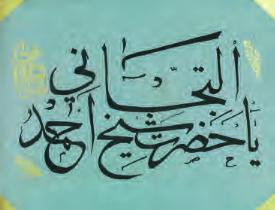 يا حضرت شيخ احمد
التجاني